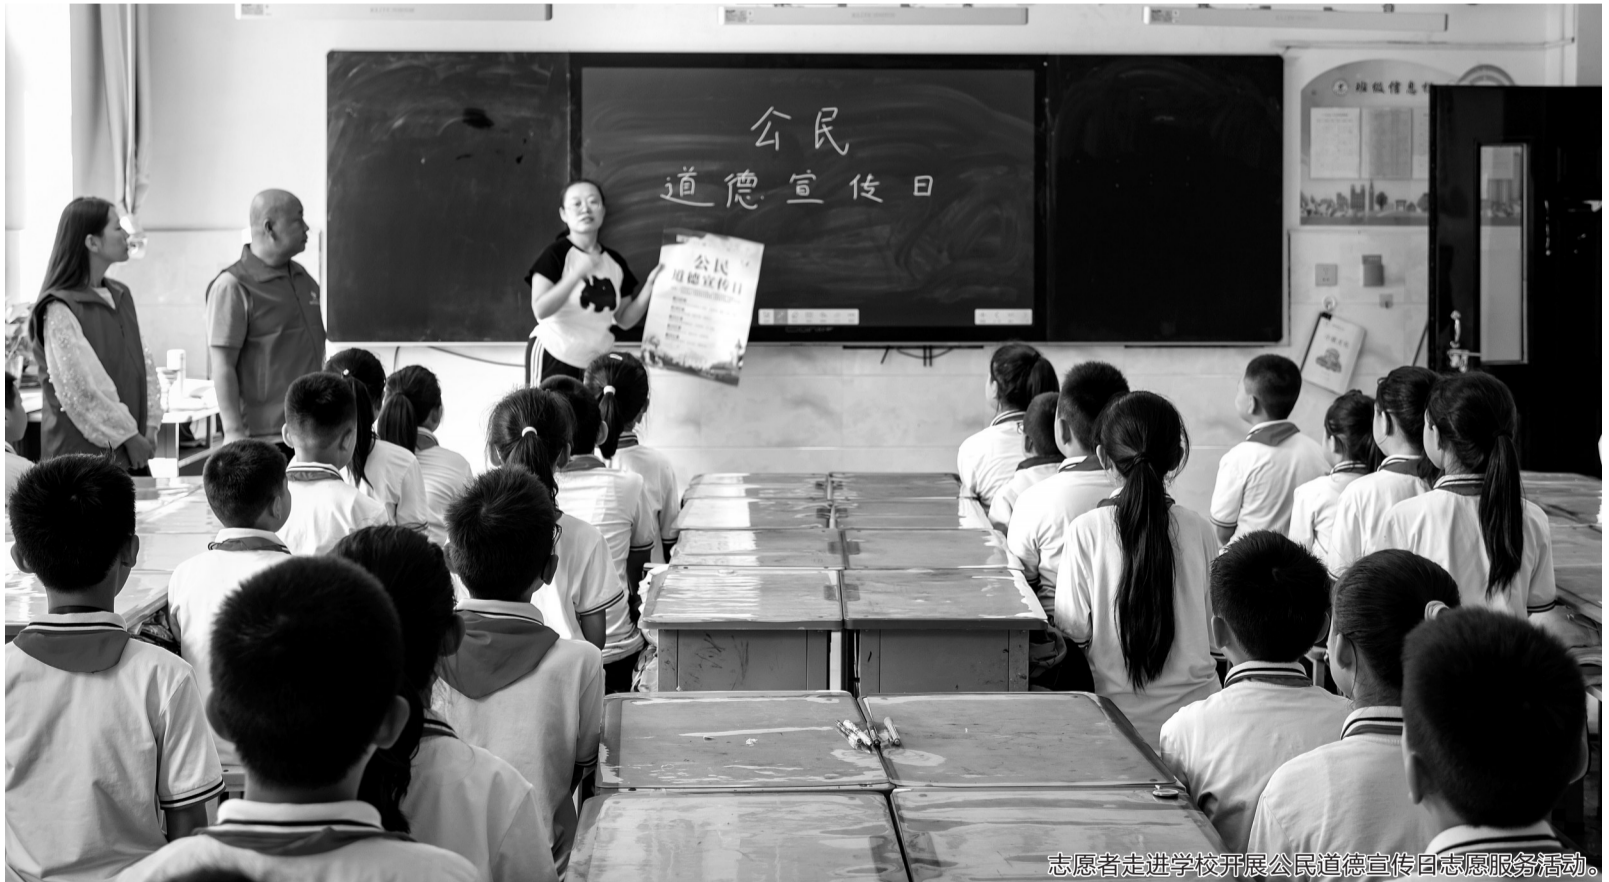 公民
道德宣传日
班级信息
公民
道德宣传日
志愿者走进学校开展公民道德宣传日志愿服务活动。